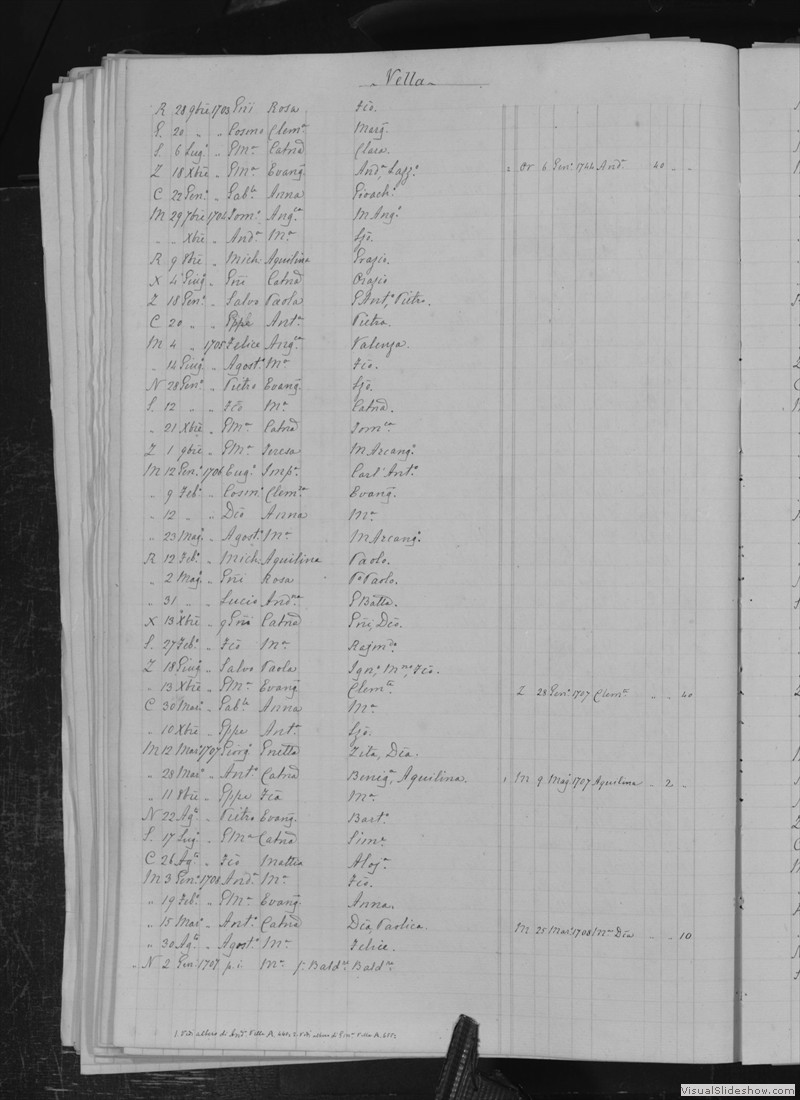 Vella
R 28 9bre 1703 Gni Rosa Fco.
S. 20 " " Cosmo Clem.a Marg.
S. 6 Lug.o " GM.a Catna Clara.
Z 18 Xbre " GM.a Evang. And.a, Lazz.o 2 Or 6 Gen.o 1744 And. 40 " "
C 22 Gen.o " Gab.le Anna Gioach.o
M 29 7bre 1704 Dom.o Ang.ca M Ang.o
" " Xbre " And.a M.a Gjo.
R 9 8bre " Mich. Aquilina Grazio.
X 4 Giug.o " Gni Catna Orazio
Z 18 Gen.o " Salvo Paola G Ant.o, Pietro.
C 20 " " Gppe Ant.a Pietro.
M 4 " 1705 Felice Ang.ca Valenza.
" 14 Giug.o " Agost.o M.a Fco.
N 28 Gen.o " Pietro Evang. Gjo.
S. 12 " " Fco M.a Catna.
" 21 Xbre " GM.a Catna Dom.ca
Z 1 9bre " GM.a Teresa M Arcang.o
M 12 Gen.o 1706 Eug.o Imp.a Carl' Ant.o
" 9 Feb.o " Cosm.o Clem.a Evang.
" 12 " " Dco Anna M.a
" 23 Mag.o " Agost.o M.a M Arcang.o
R 12 Feb.o " Mich. Aquilina Paolo.
" 2 Mag.o " Gni Rosa P.o Paolo.
" 31 " " Lucio And.na G Batta.
X 13 Xbre " q Gni Catna Gni, Dco.
S. 27 Feb.o " Fco M.a Rajm.do
Z 18 Giug.o " Salvo Paola Ign.o, M.no, Fco.
" 13 Xbre " GM.a Evang. Clem.te Z 28 Gen.o 1707 Clem.te " " 40
C 30 Mar.o " Gab.le Anna M.a
" 10 Xbre " Gppe Ant.a Gjo.
M 12 Mar.o 1707 Giorg.o Gnetta Zita, Dca.
" 28 Mar.o " Ant.o Catna Benig.a, Aquilina. 1 M 9 Mag.o 1707 Aquilina " 2 "
" 11 8bre " Gppe Fca M.a
N 22 Ag.o " Pietro Evang. Bart.o
S. 17 Lug.o " GM.a Catna Sim.e
C 26 Ag.o " Fco Mattia Aloj.a
M 3 Gen.o 1708 And.a M.a Fco.
" 19 Feb.o " GM.a Evang. Anna.
" 15 Mar.o " Ant.o Catna Dca, Paolica. M 25 Mar.o 1708 M.a Dca " " 10
" 30 Ag.o " Agost.o M.a Felice.
" N 2 Gen. 1707 p.i. M.a f. Bald.e Bald.e
VisualSlideshow.com